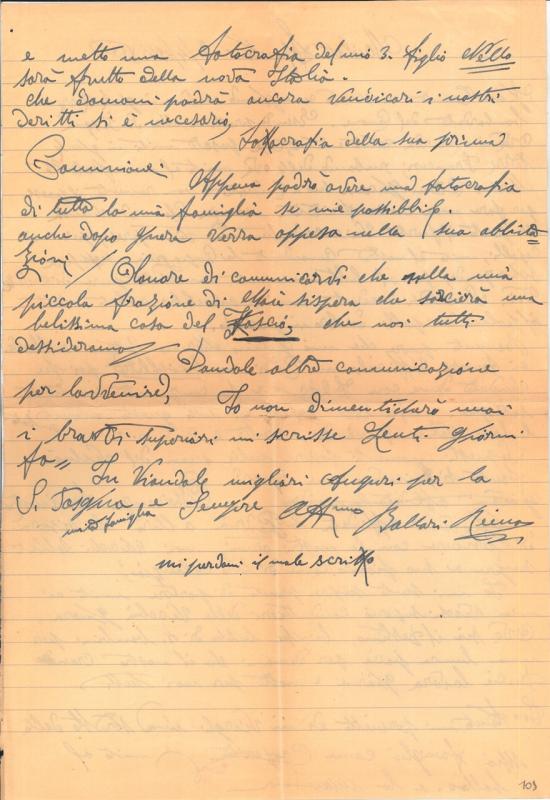 e metto una fotocrafia del mio 3. figlio Nello
sarà frutto della nova Italia.
che domani podrà ancora vendicari i nostri
deritti si è necesario,
fotocrafia della sua prima
Comunione.
Appena podrò avere una fotocrafia
di tutta la mia famiglia se mie possibbile.
anche dopo guera verra appesa nella sua abbita
zioni / Olonare di comunicardi che nella mia
piccola frazione di si spera che una
belissima cosa del Fascio, che noi tutti
dessideramo
Dandole altre comunicazione
per lavenire,
Io non dimenticharò mai
i bravi superiori mi scrisse Zenti. Giorni
fa"
In viandole migliori Auguri per la
S. Pasqua e sempre Affmo Ballari
mia famiglia
mi perdoni il male scritto
103